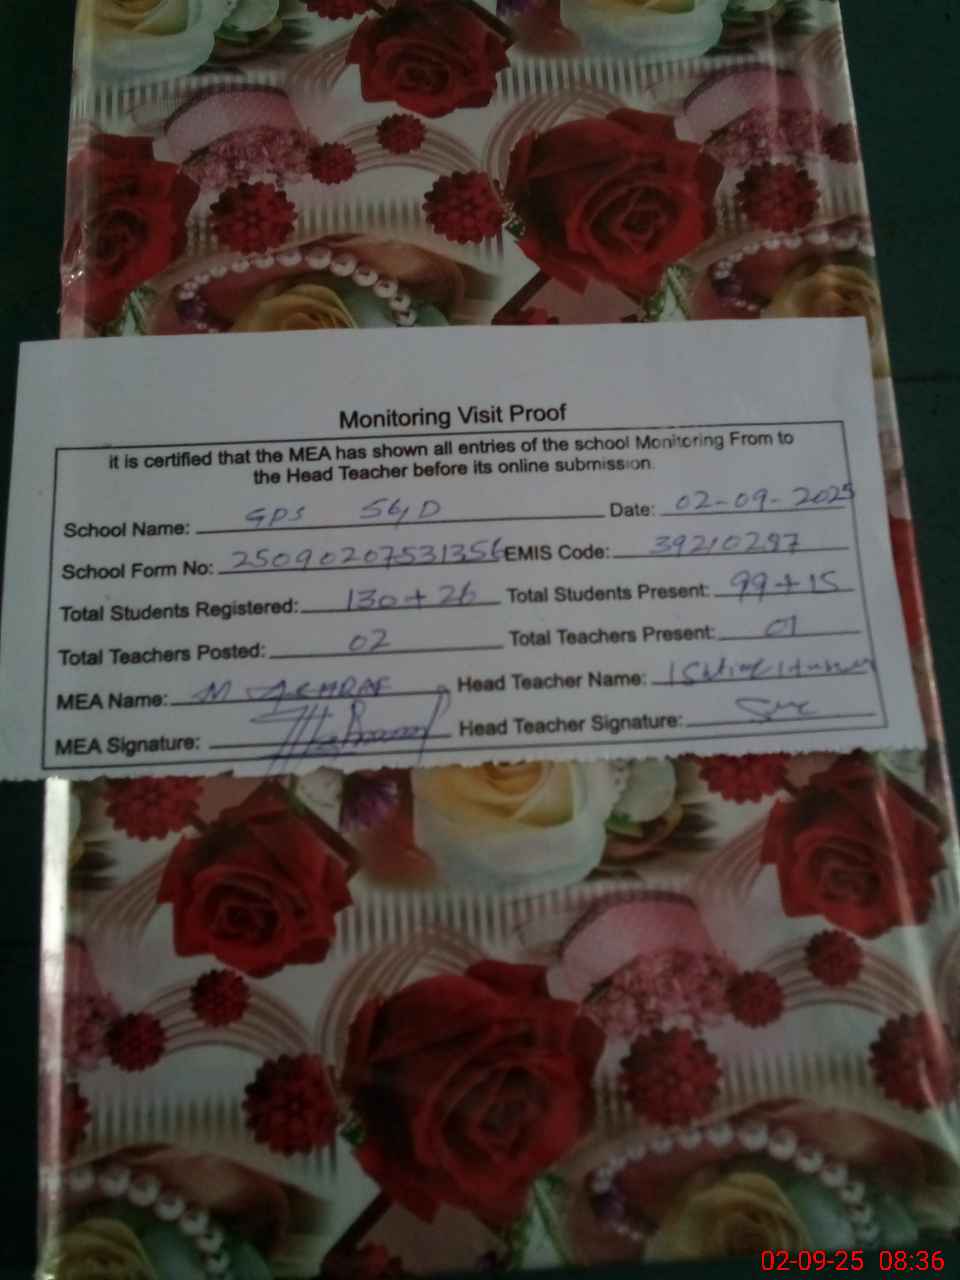 Monitoring Visit Proof
it is certified that the MEA has shown all entries of the school Monitoring From to
the Head Teacher before its online submission.
School Name: GPS 56/D Date: 02-09-2025
School Form No: 25090207531356 EMIS Code: 39210287
Total Students Registered: 130+26 Total Students Present: 99+15
Total Teachers Posted: 02 Total Teachers Present: 01
MEA Name: M Head Teacher Name:
MEA Signature: Head Teacher Signature:
02-09-25 08:36